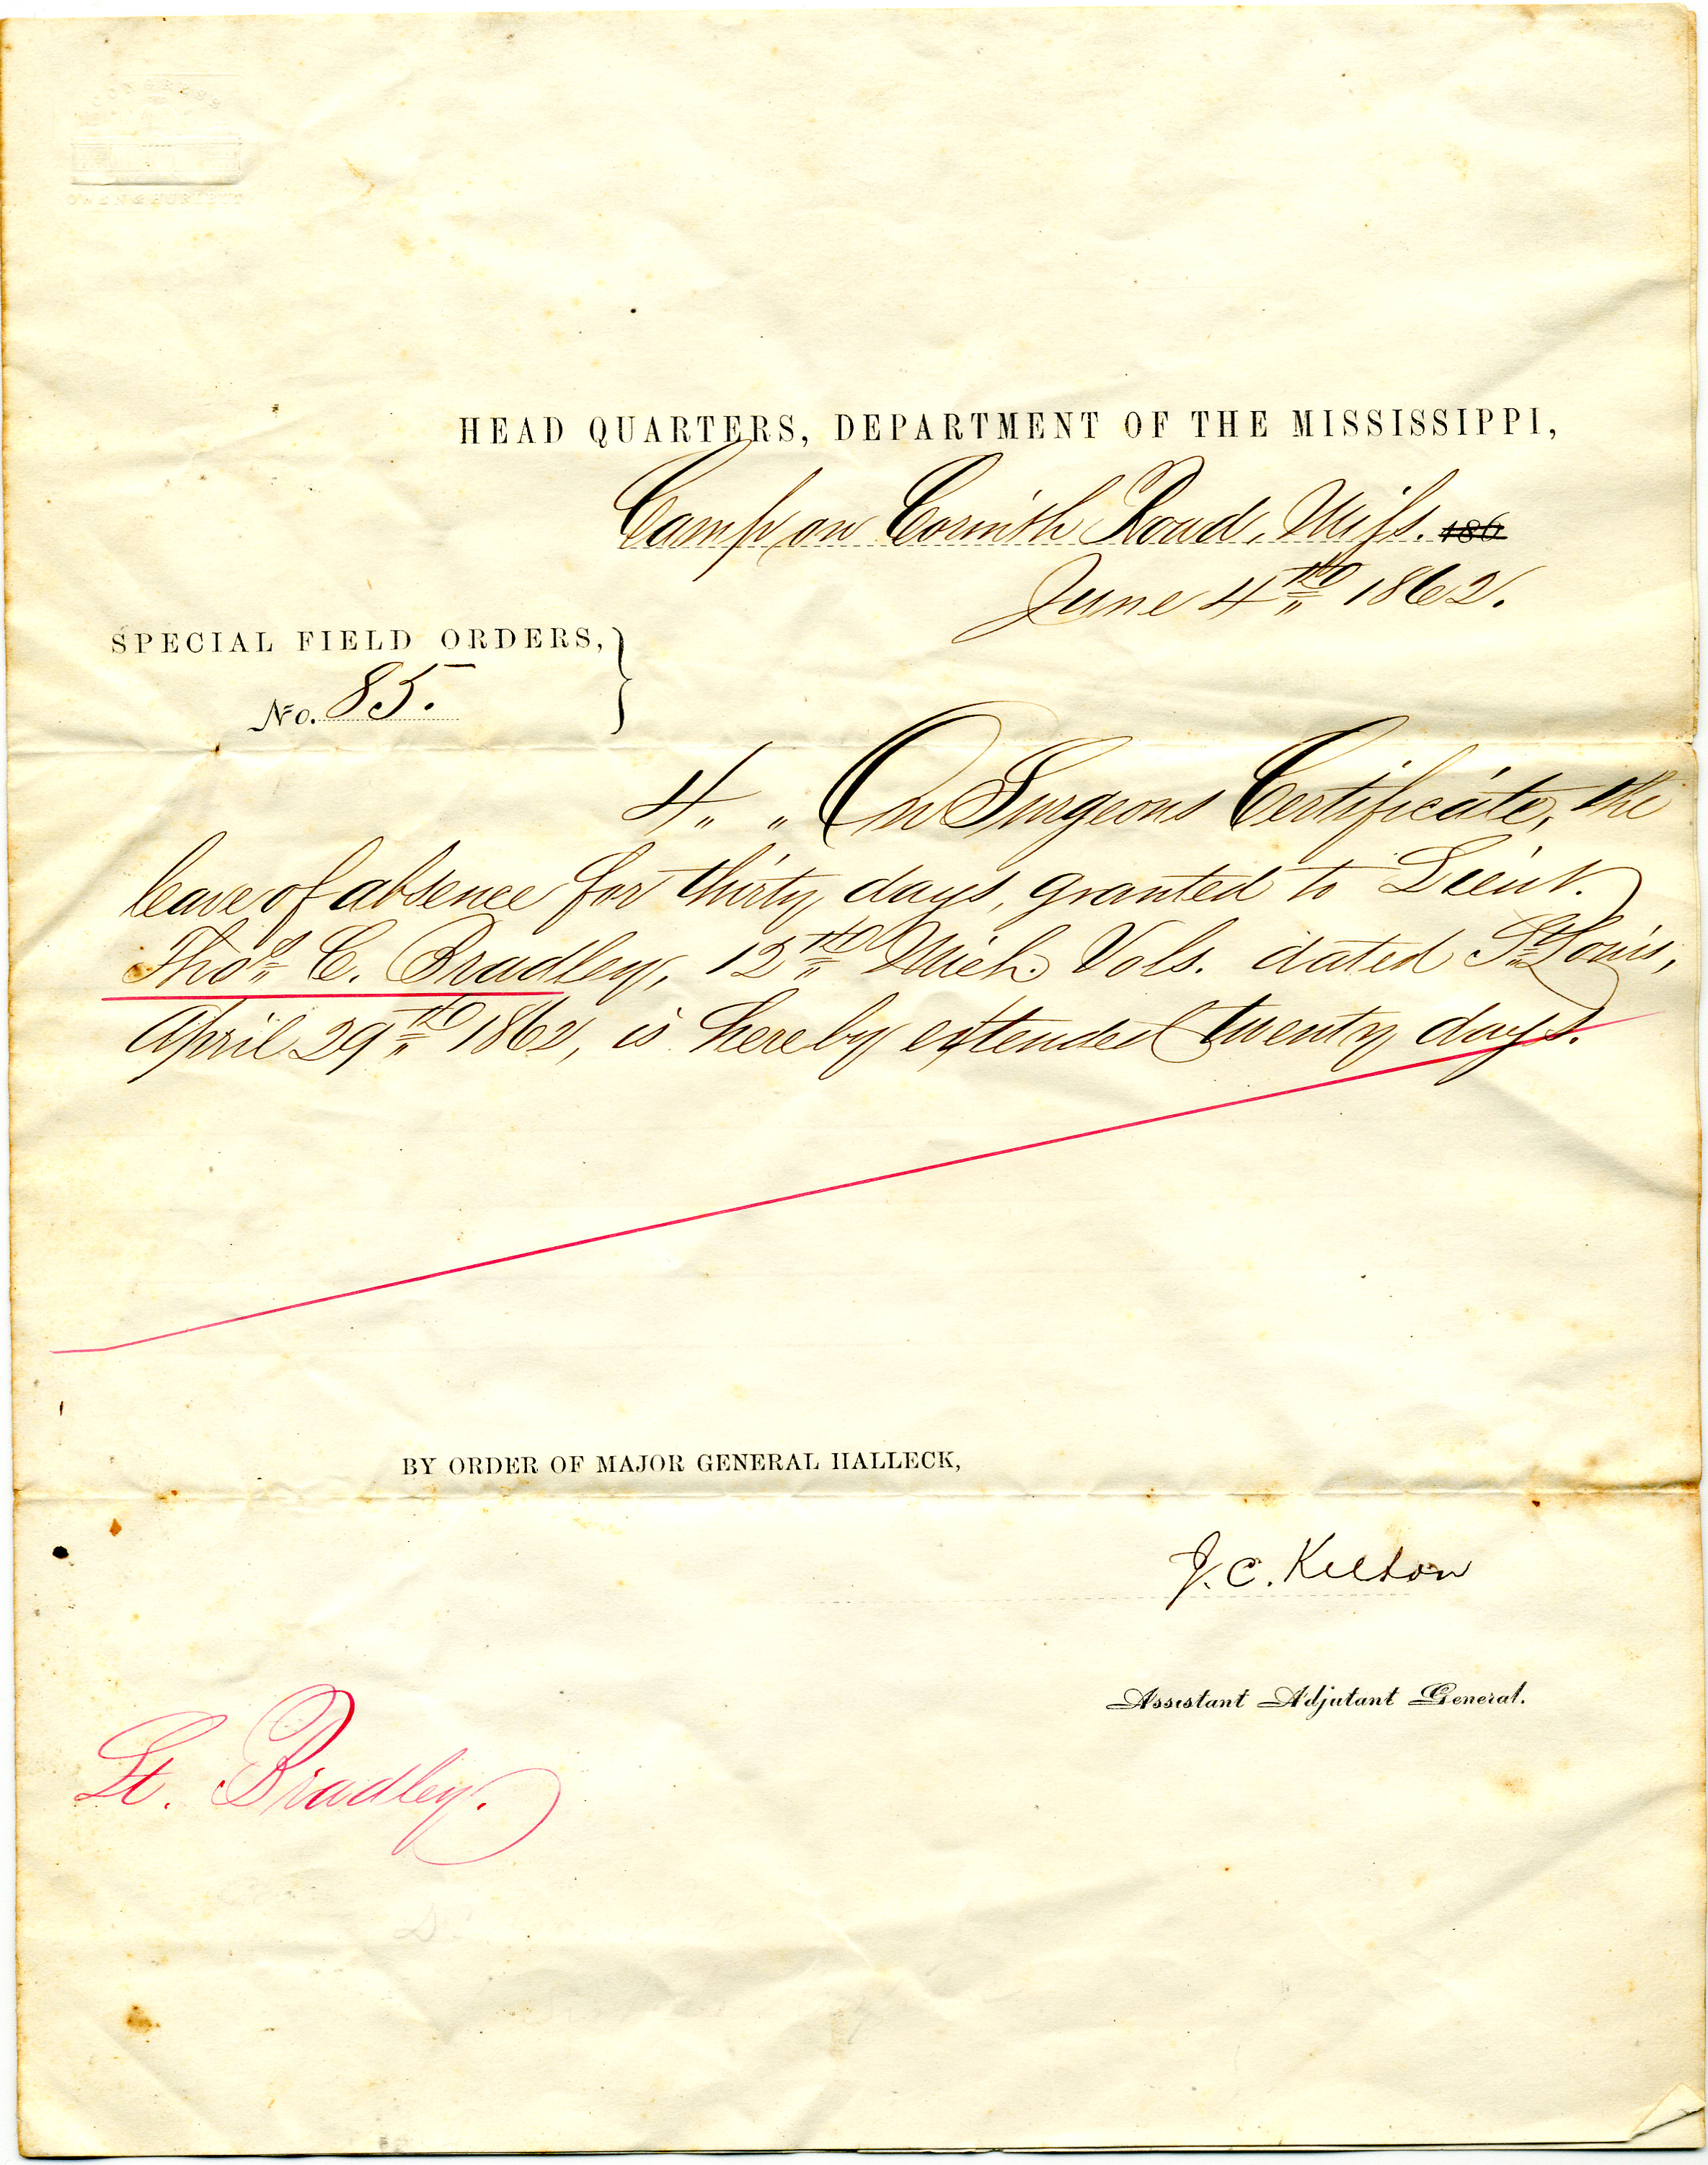 HEAD QUARTERS, DEPARTMENT OF THE MISSISSIPPI,
Camp on Corinth Road, Miss. 186
June 4th 1862.
SPECIAL FIELD ORDERS,
No. 85.
4,, ,, On Surgeons Certificate, the
leave of absence for thirty days, granted to Lieut.
Thos. C. Bradley, 12th Mich. Vols. dated St Louis,
April 29th 1862, is hereby extended twenty days.
BY ORDER OF MAJOR GENERAL HALLECK,
J. C. Kelton
Assistant Adjutant General.
Lt. Bradley.